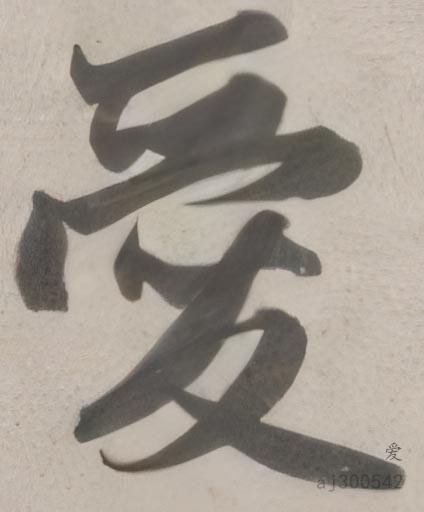 愛
爱
aj300542